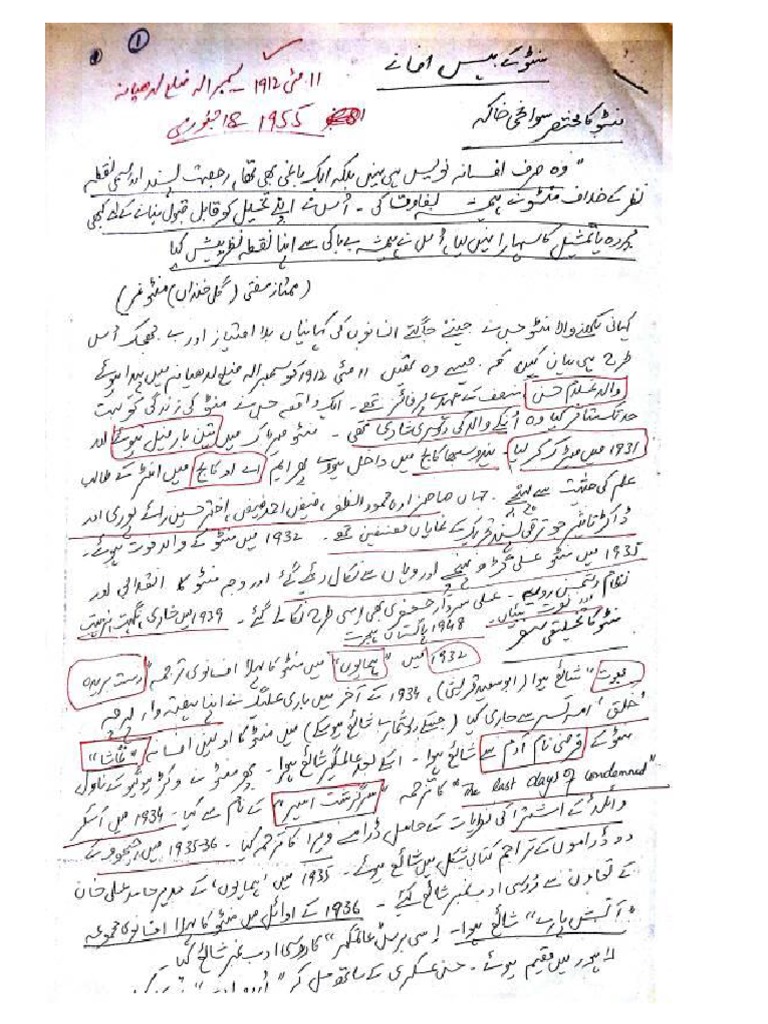 1
منٹو کے بیس افسانے
11 مئی 1912 سمبرالہ ضلع لدھیانہ
18 جنوری 1955
منٹو کا مختصر سوانحی خاکہ
"وہ صرف افسانہ نویس ہی نہیں بلکہ ایک باغی بھی تھا، رجعت پسند اور رسمی نقطہ
نظر کے خلاف منٹو نے ہمیشہ بغاوت کی ۔ اُس نے اپنے تخیل کو قابل قبول بنانے کے لیے کبھی
پردہ یا تمثیل کا سہارا نہیں لیا، اُس نے ہمیشہ بے باکی سے اپنا نقطہ نظر پیش کیا
(ممتاز مفتی (گل خنداں) منٹو نمبر)
کہانی لکھنے والا منٹو جس نے جیتے جاگتے انسانوں کی کہانیاں بلا امتیاز اور بے جھجک اُس
طرح ہی بیان کیں کہ جیسے وہ تھیں 11 مئی 1912 کو سمبرالہ ضلع لدھیانہ میں پیدا ہوئے
والد غلام حسن منصف کے عہدے پر فائز تھے ۔ ایک واقعہ جس نے منٹو کی زندگی کو بہت
حد تک متاثر کیا وہ اُنکے والد کی دوسری شادی تھی ۔ منٹو میٹرک میں تین بار فیل ہوئے اور
1931 میں میٹرک کر لیا ۔ ہندو سبھا کالج میں داخل ہوئے پھر ایم اے او کالج میں انٹر کے طالب
علم کی حیثیت سے پڑھے ۔ جہاں صاحبزادہ محمود الظفر، فیض احمد فیض، اختر حسین رائے پوری اور
ڈاکٹر تاثیر جو ترقی پسند تحریک کے نمایاں مصنفین تھے ۔ 1932 میں منٹو کے والد فوت ہوئے ۔
1935 میں منٹو علی گڑھ پہنچے اور وہاں سے نکال دیئے گئے اور وجہ منٹو کا انقلابی اور
نظام دشمن رویہ ۔ علی سردار جعفری بھی اسی طرح نکالے گئے ۔ 1939 میں شادی، نگہت، نزہت
اور نصرت بیٹیاں ۔ 1948 پاکستان ہجرت
منٹو کا تخلیقی سفر
1932 میں "ہمایوں" میں منٹو کا پہلا افسانوی ترجمہ "دست بریدہ
بھوت" شائع ہوا (ابو سعید قریشی)، 1934 کے آخر میں باری علیگ نے اپنا ہفتہ وار پرچہ
'خلق' امرتسر سے جاری کیا (جسکے دو شمارے شائع ہوسکے) میں منٹو کا اولین افسانہ "تماشا"
منٹو کے فرضی نام آدم سے شائع ہوا ۔ اسکے بعد عالمگیر شائع ہوا ۔ پھر منٹو نے وکٹر ہیوگو کے ناول
"The last days of condemned" کا ترجمہ "سرگزشت اسیر" کے نام سے کیا ۔ 1934 میں آسکر
وائلڈ کے اشتراکی نظریات کے حامل ڈرامے ویرا کا ترجمہ کیا ۔ 36-1935 میں چیخوف کے
دو ڈراموں کے تراجم کتابی شکل میں شائع ہوئے ۔ 1935 میں 'ہمایوں' کے مدیر حامد علی خان
کے تعاون سے روسی ادب نمبر شائع کیے ۔ 1936 کے اوائل میں منٹو کا پہلا افسانوی مجموعہ
"آتش پارے" شائع ہوا ۔ اسی برس عالمگیر کا روسی ادب نمبر شائع کیا ۔
لاہور میں مقیم ہوئے ۔ حسن عسکری کے ساتھ مل کر "اردو ادب"